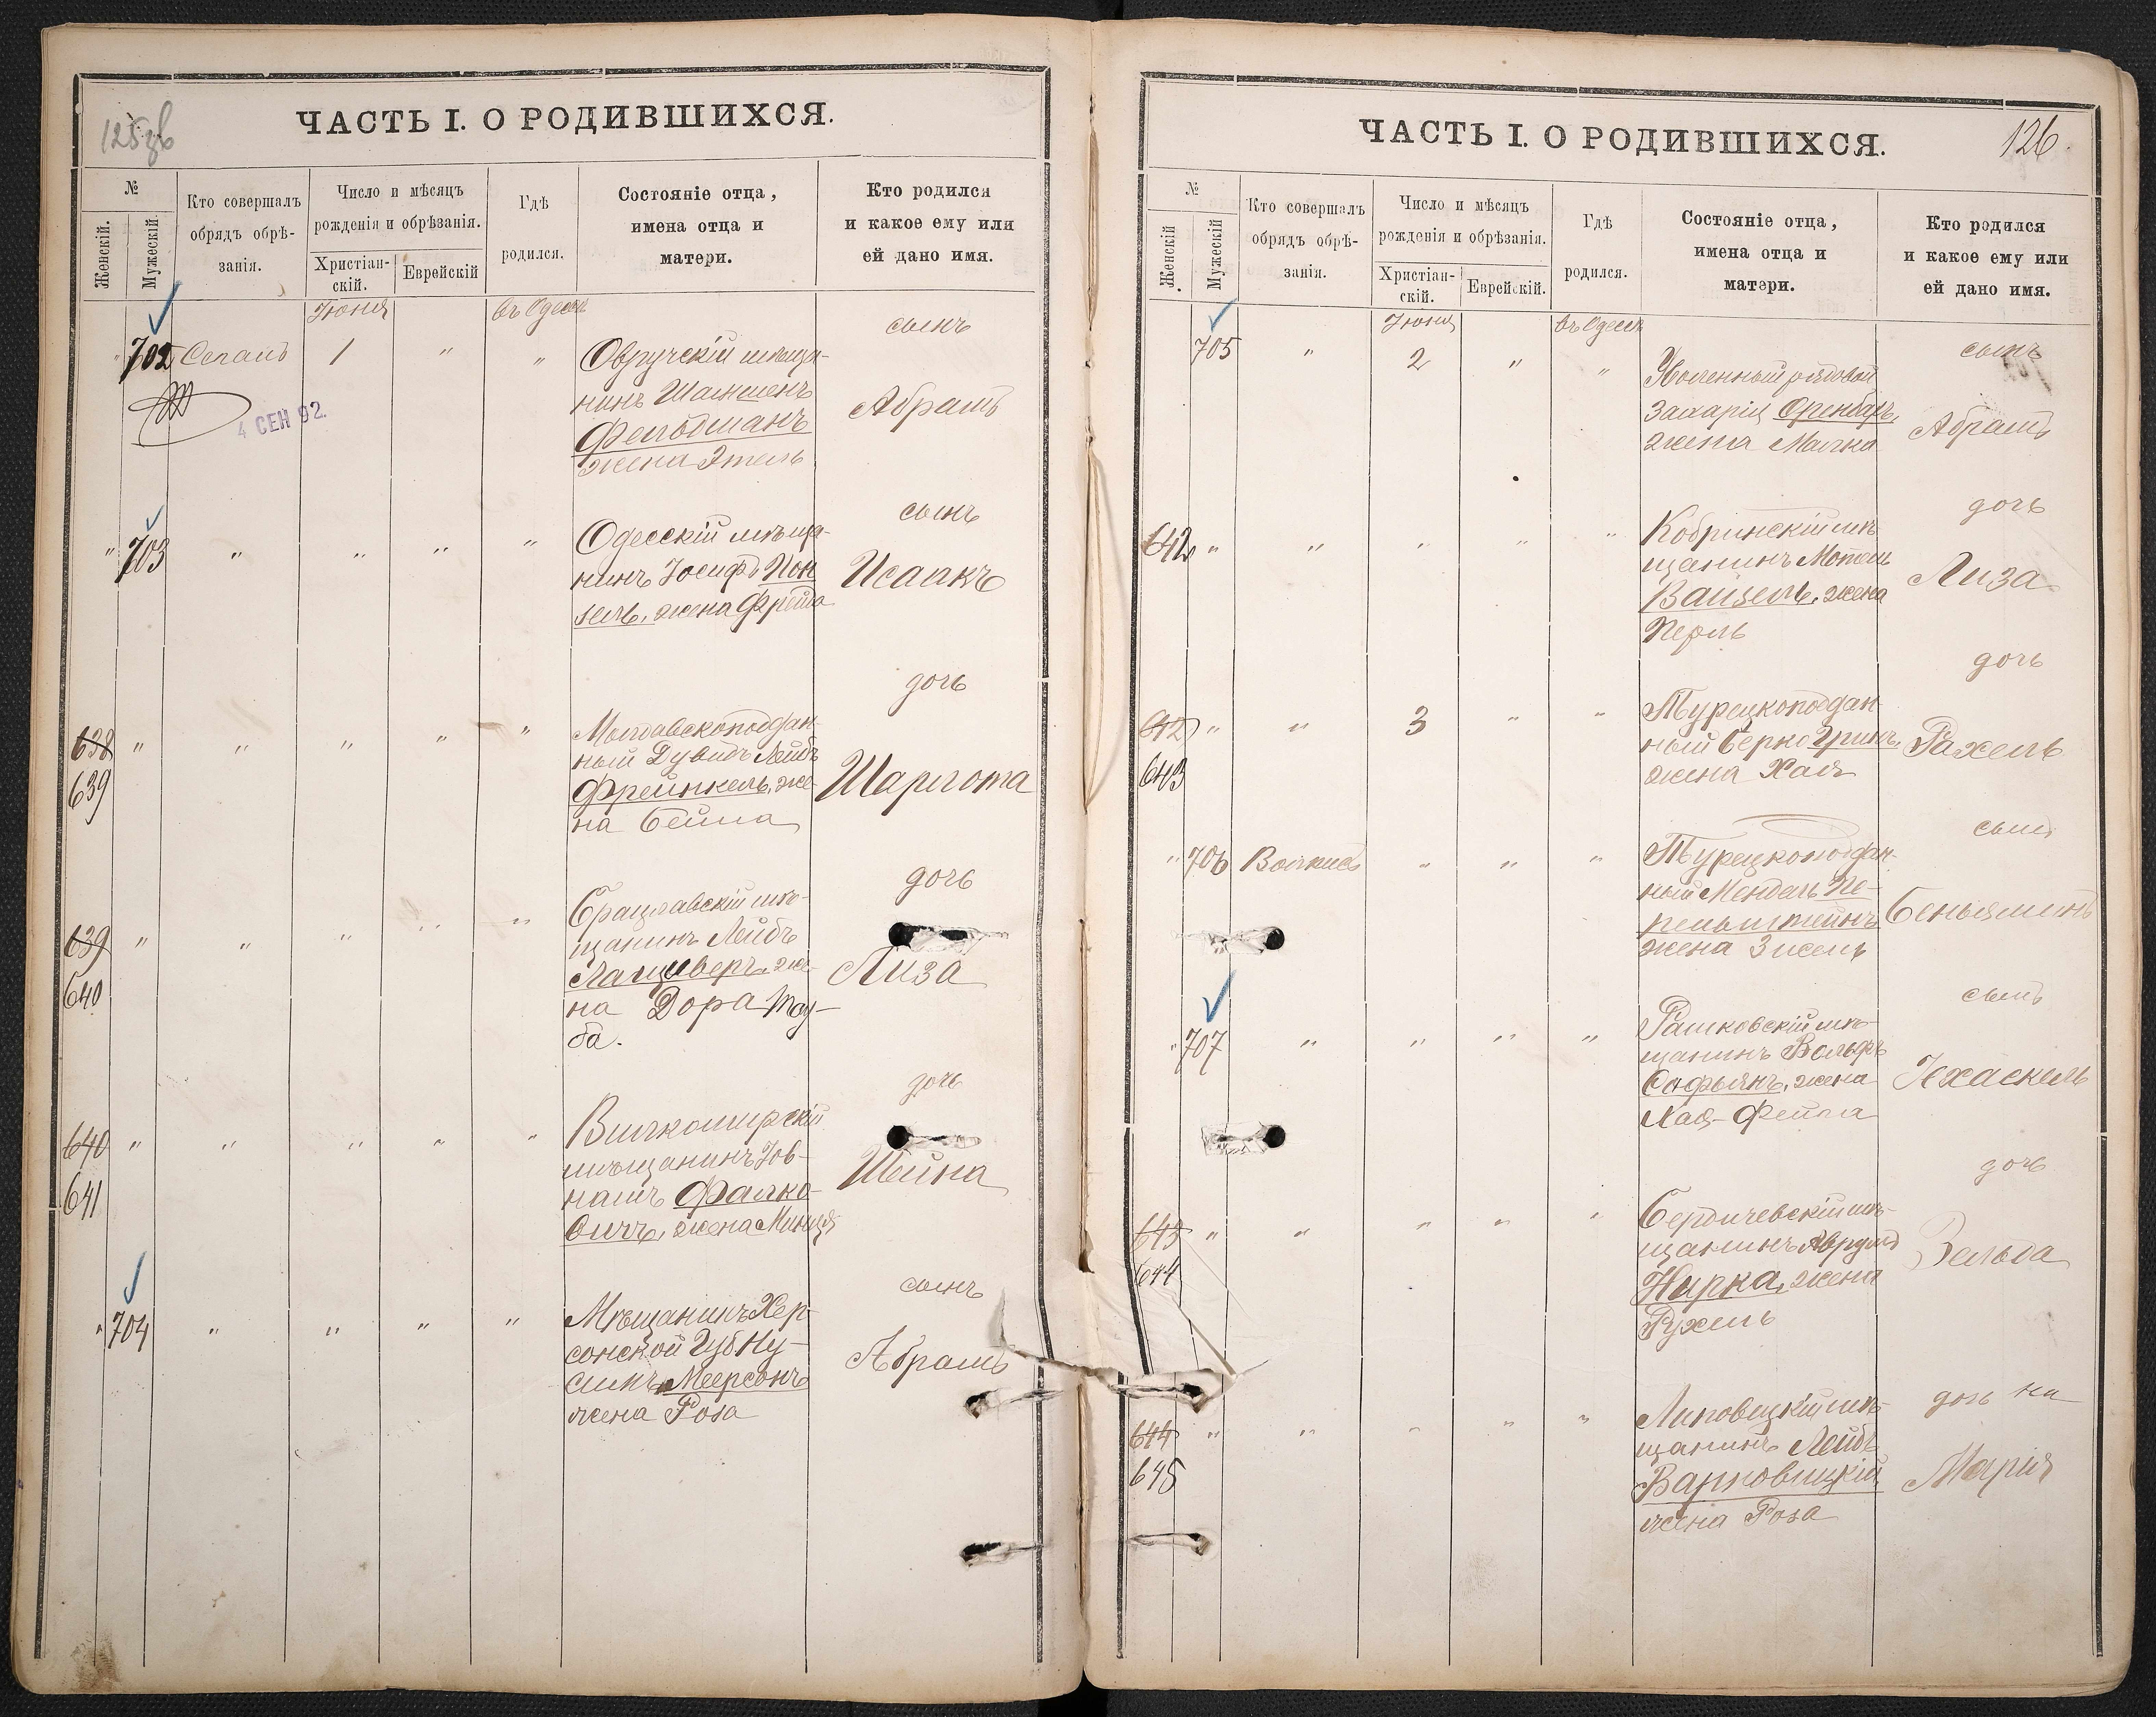 125 об
ЧАСТЬ I. О РОДИВШИХСЯ.
№
Женскій.
Мужескій
Кто совершалъ
обрядъ обрѣ-
занія.
Число и мѣсяцъ
рожденія и обрѣзанія.
Христіан-
скій.
Еврейскій
Гдѣ
родился.
Состояніе отца,
имена отца и
матери.
Кто родился
и какое ему или
ей дано имя.
Іюня
въ Одессѣ
" 702
1 " "
Овручскій мѣща-
нинъ
Фельдманъ
жена Этель
сынъ
Абрамъ
4 СЕН 92.
" 703 " " " "
Одесскій мѣща-
нинъ Іосифъ Пон
зель, жена
сынъ
Исаакъ
638 " " " " "
639
Молдавскоподдан-
ный Дувидъ Лейбъ
Френкель, же-
на Бейла
дочь
Шарлота
639 " " " " "
640
Брацлавскій мѣ-
щанинъ Лейбъ
же-
на Дора Тау-
ба.
дочь
Лиза
640 " " " " "
641
Вилкомирскій
мѣщанинъ
Фалко-
вичъ, жена
дочь
Шейна
" 704 " " " "
Мѣщанинъ Хер-
сонской Губ Ну-
Меерсонъ
жена Роза
сынъ
Абрамъ
126.
ЧАСТЬ I. О РОДИВШИХСЯ.
№
Женскій.
Мужескій
Кто совершалъ
обрядъ обрѣ-
занія.
Число и мѣсяцъ
рожденія и обрѣзанія.
Христіан-
скій.
Еврейскій.
Гдѣ
родился.
Состояніе отца,
имена отца и
матери.
Кто родился
и какое ему или
ей дано имя.
Іюня
въ Одессѣ
705 " 2 " "
Уволенный рядовой
Захарія
жена Малка
сынъ
Абрамъ
642 " " " " "
Кобринскій мѣ
щанинъ Мотель
Вайзель, жена
Перль
дочь
Лиза
642 " " 3 " "
643
Турецкоподдан
ный Берко Гринъ,
жена Хая
дочь
Рахель
" 706 " " "
Турецкоподдан-
ный Мендель Пе-
рельштейнъ
жена Зисель
сынъ
Беньяминъ
" 707 " " " "
Рашковскій мѣ-
щанинъ Вольфъ
Софьянъ, жена
Хая-Фейга
сынъ
Іехаскель
643 " " " " "
644
Бердичевскій мѣ-
щанинъ
Нирка, жена
Рухель
дочь
Зельда
644 " " " " "
645
Липовецкій мѣ-
щанинъ Лейбъ
Варновицкій
жена Роза
дочь
Марія